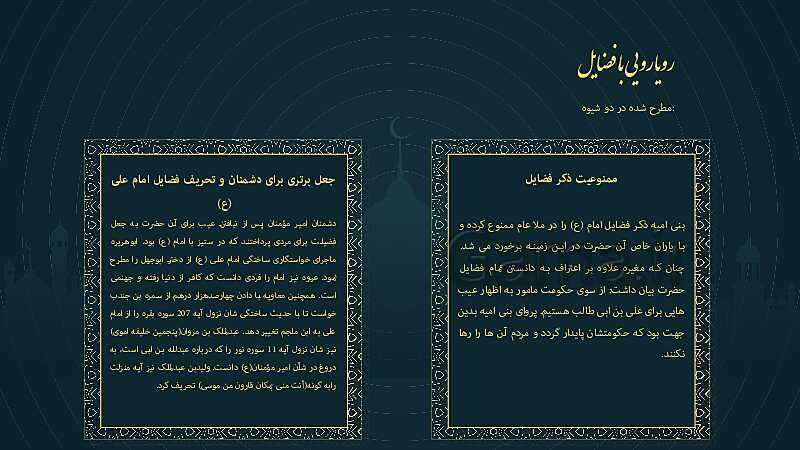 رویارویی با فضایل
مطرح شده در دو شیوه:
ممنوعیت ذکر فضایل
بنی امیه ذکر فضایل امام (ع) را در ملا عام ممنوع کرده و
با یاران خاص آن حضرت در این زمینه برخورد می شد.
چنان که مغیره علاوه بر اعتراف به دانستن تمام فضایل
حضرت بیان داشت: از سوی حکومت مامور به اظهار عیب
هایی برای علی بن ابی طالب هستیم. پروای بنی امیه بدین
جهت بود که حکومتشان پایدار گردد و مردم آن ها را رها
نکنند.
جعل برتری برای دشمنان و تحریف فضایل امام علی
(ع)
دشمنان امیر مؤمنان پس از نیافتن عیب برای آن حضرت به جعل
فضیلت برای مردی پرداختند که در ستیز با امام (ع) بود. ابوهریره
ماجرای خواستگاری ساختگی امام علی (ع) از دختر ابوجهل را مطرح
نمود. عروه نیز امام را فردی دانست که کافر از دنیا رفته و جهنمی
است. همچنین معاویه با دادن چهارصدهزار درهم از سمره بن جندب
خواست تا با حدیث ساختگی شان نزول آیه 207 سوره بقره را از امام
علی به ابن ملجم تغییر دهد. عبدلملک بن مروان(پنجمین خلیفه اموی)
نیز شان نزول آیه 11 سوره نور را که درباره عبدلله بن ابی است، به
دروغ در شأن امیر مؤمنان(ع) دانست. ولیدبن عبدلملک نیز آیه منزلت
رابه گونه(أنت منی بمکان قارون من موسی) تحریف کرد.